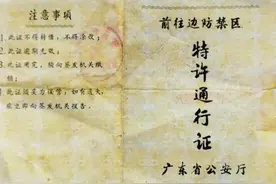 注意事项
1.此证不得转借，不得涂改；
2.此证逾期无效；
3.此证用完，请向签发机关缴
销；
4.此证须妥为保管，如有遗失，
应立即向签发机关报告。
前往边防禁区
特许通行证
广东省公安厅